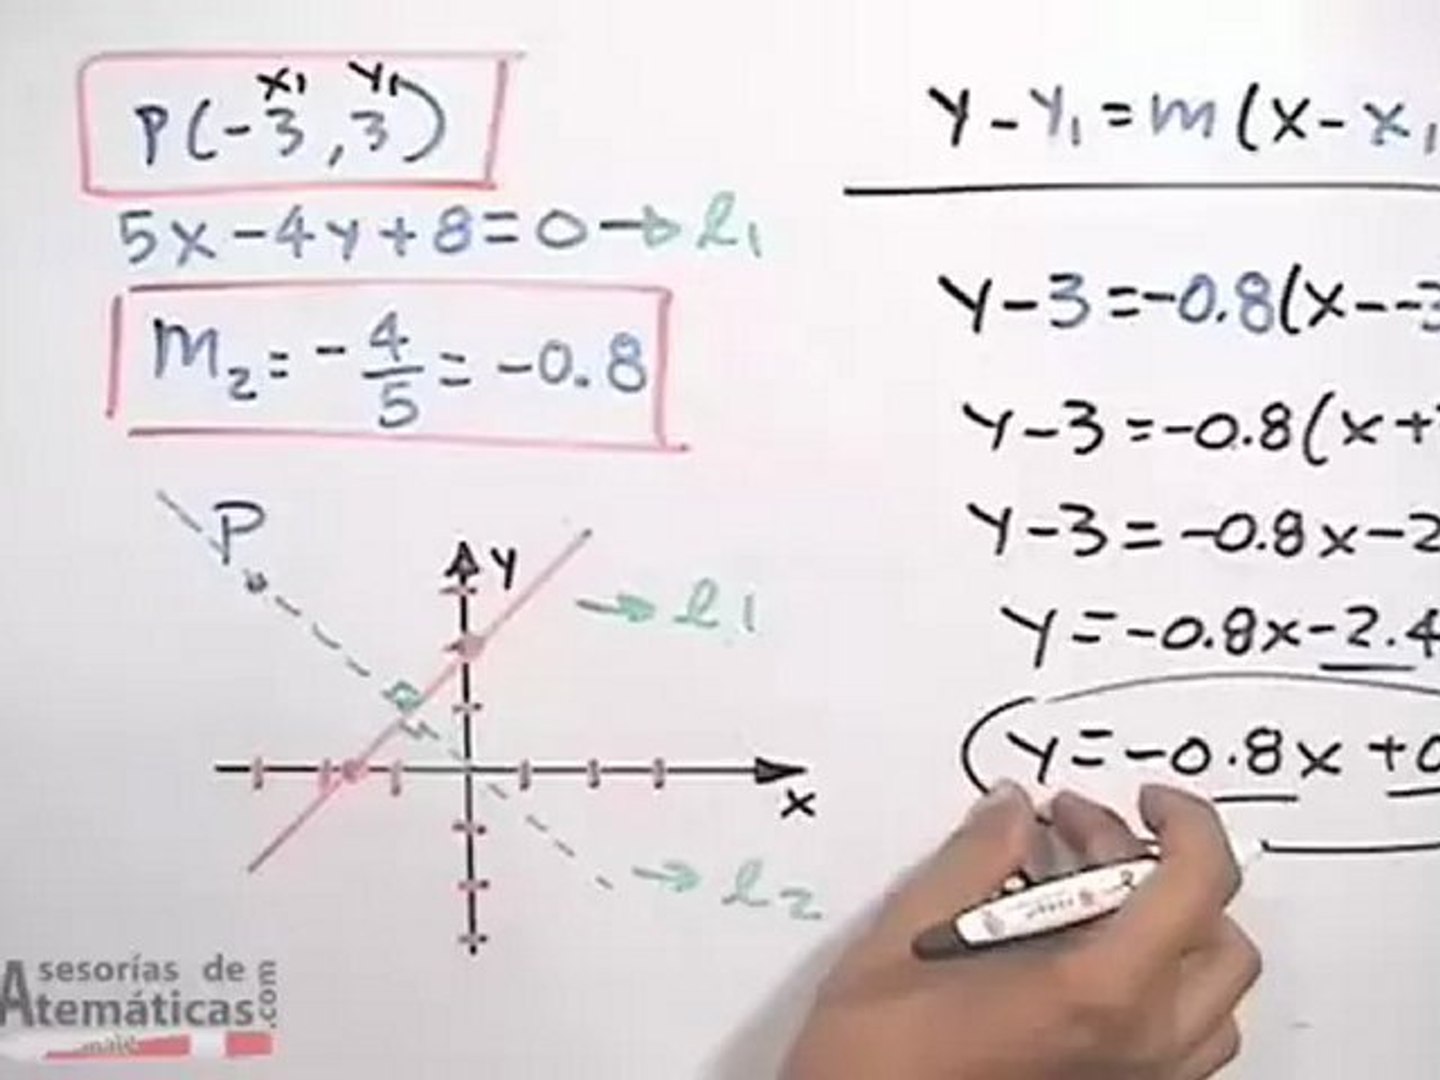 x₁ y₁
P(-3,3)
5x-4y+8=0→l₁
m₂=-4/5=-0.8
P
y
→l₁
x
→l₂
y-y₁=m(x-x₁
y-3=-0.8(x--3
y-3=-0.8(x+
y-3=-0.8x-2
y=-0.8x-2.4
y=-0.8x+0
Asesorías de
Atemáticas.com